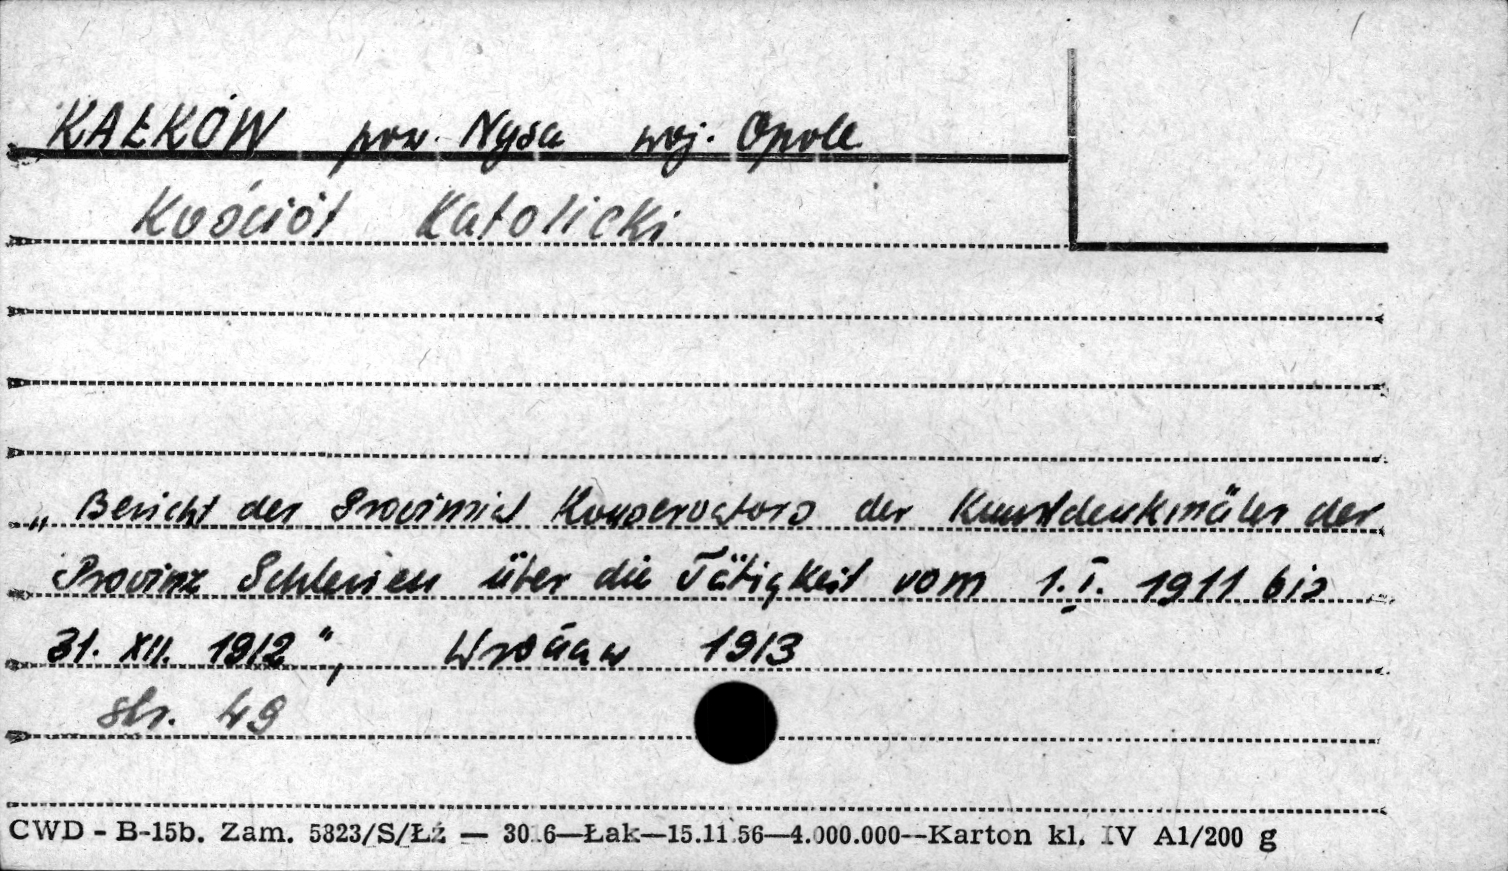 KAŁKÓW pow. Nysa woj. Opole
Kościół Katolicki
„Bericht des Provinzial Konservators der Kunstdenkmäler der
Provinz Schlesien über die Tätigkeit vom 1. I. 1911 bis
31. XII. 1912", Wrocław 1913
str. 49
CWD - B-15b. Zam. 5323/S/Łź — 30.6—Łak—15.11.56—4.000.000--Karton kl. IV A1/200 g